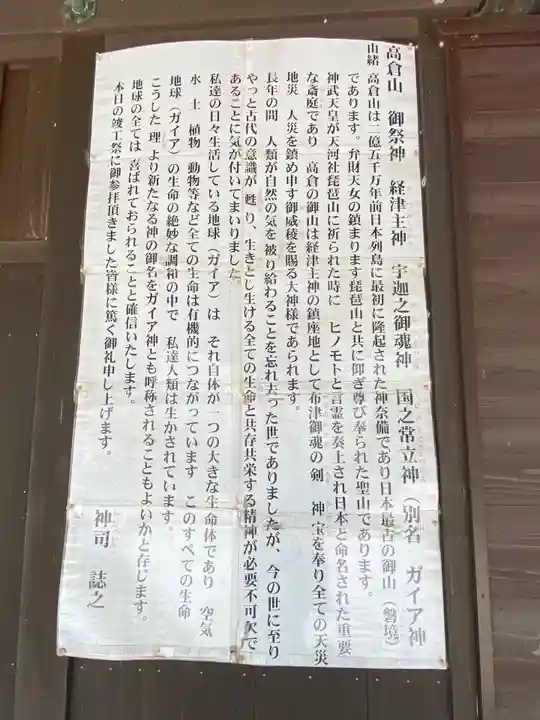 高倉山　御祭神　経津主神　宇迦之御魂神　国之常立神（別名　ガイア神
由緒　高倉山は二億五千万年前日本列島に最初に隆起された神奈備であり日本最古の御山（磐境）
であります。弁財天女の鎮まります琵琶山と共に仰ぎ尊び奉られた聖山であります。
神武天皇が天河社琵琶山に祈られた時に　ヒノモトと言霊を奏上され日本と命名された重要
な斎庭であり　高倉の御山は経津主神の鎮座地として布津御魂の剣　神宝を奉り全ての天災
地災　人災を鎮め申す御威稜を賜る大神様であられます。
長年の間　人類が自然の気を被り給わることを忘れ去った世でありましたが、今の世に至り
やっと古代の意識が甦り、生きとし生ける全ての生命と共存共栄する精神が必要不可欠で
あることに気が付いてまいりました。
私達の日々生活している地球（ガイア）は　それ自体が一つの大きな生命体であり　空気
水　土　植物　動物等など全ての生命は有機的につながっています　このすべての生命
地球（ガイア）の生命の絶妙な調和の中で　私達人類は生かされています。
こうした理より新たなる神の御名をガイア神とも呼称されることもよいかと存じます。
地球の全ては　喜ばれておられることと確信いたします。
本日の竣工祭に御参拝頂きました皆様に篤く御礼申し上げます。
神司　誌之